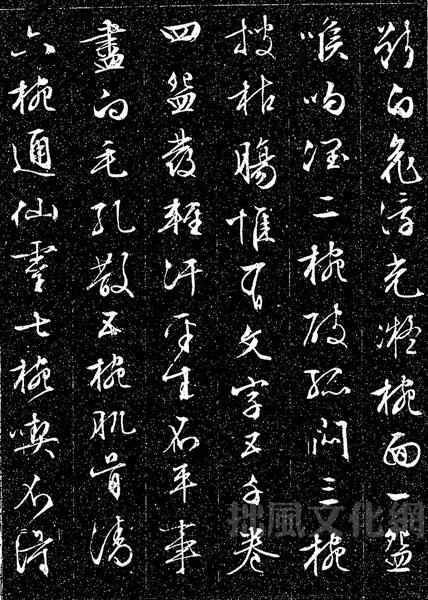 斷白花浮光凝椀面一盌
喉吻潤二椀破孤悶三椀
搜枯腸惟有文字五千卷
四盌發輕汗平生不平事
盡向毛孔散五椀肌骨清
六椀通仙靈七椀喫不得
拙風文化網